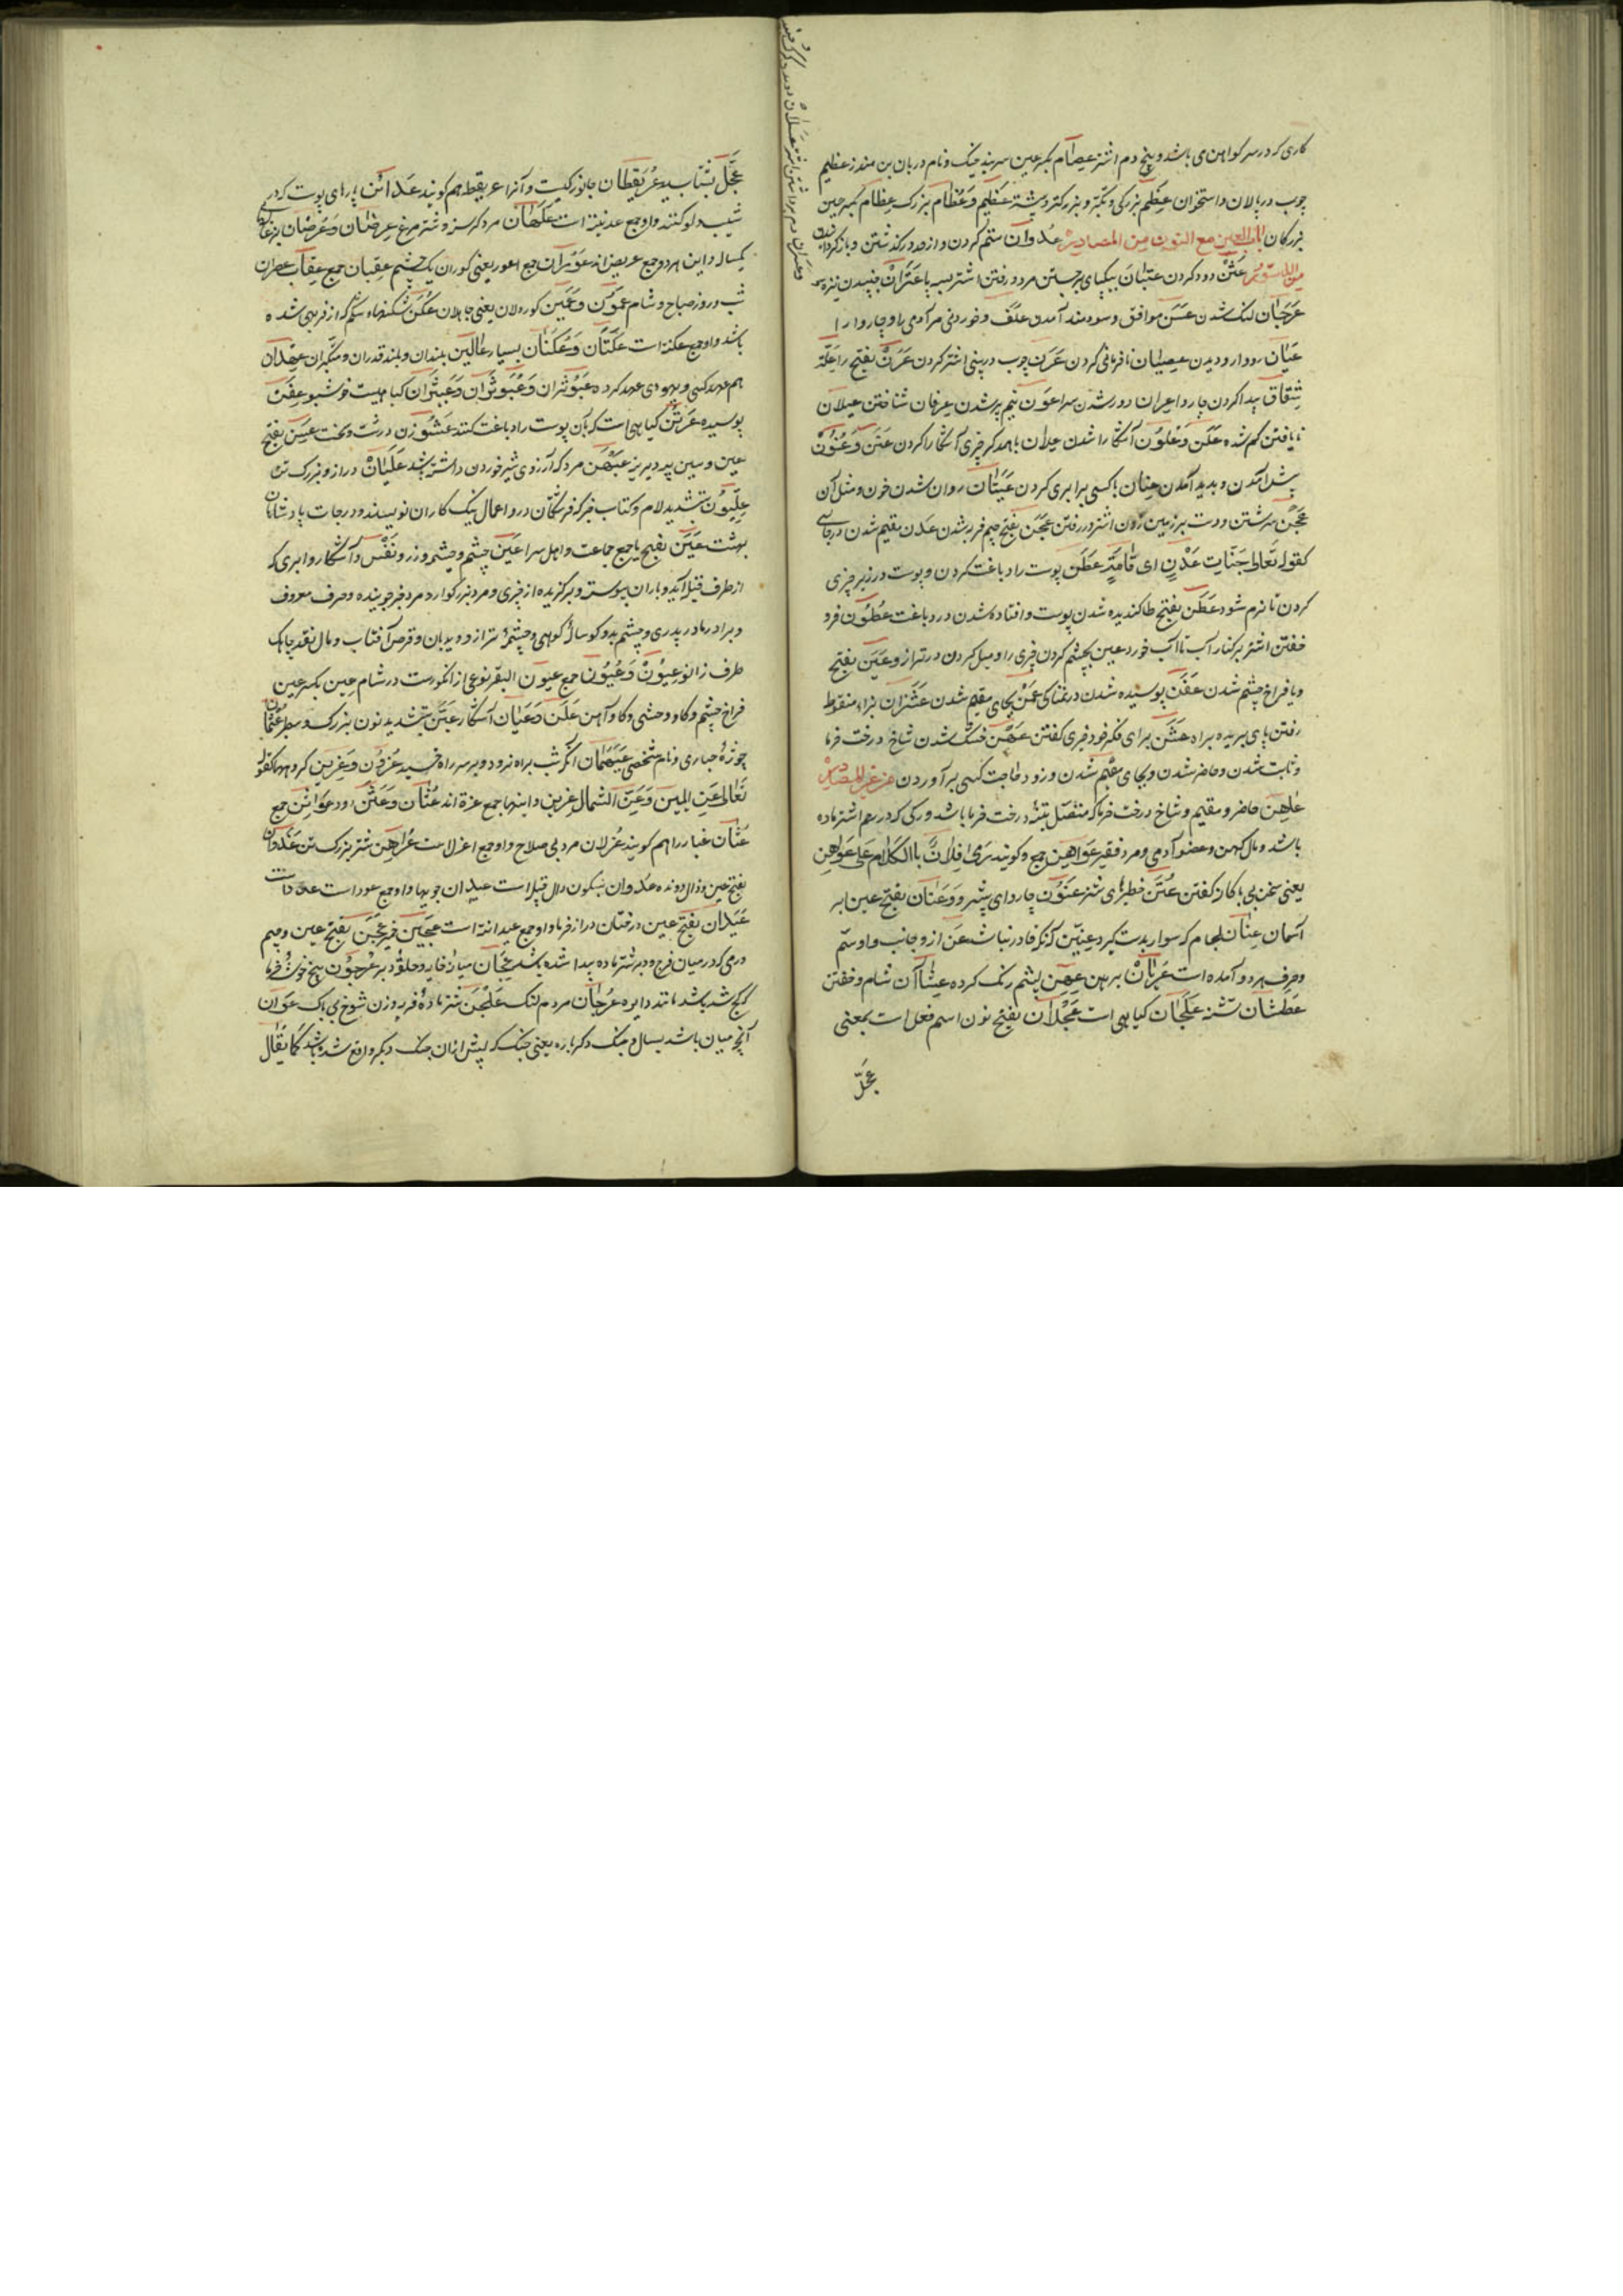 کاری که در سر کوا اهن می باشد و پنج دم اشتر عِصَام بکسر عین سربند خیک و نام دربان بن منذر عظیم
چوب در پالان و استخوان عِظَم بزرگی و تکبّر و بزرگتر و پشته عَظِیم وَ عُظَام بزرگ عِظَام بکسر عین
بزرگان بابُ العین مع النّون مِن المصادر عُدوان ستم کردن و از حد در گذشتن و باز کردانیدن
عَثن دود کردن عتبان بیکپای برجستن مرد و رفتن اشتر بسه پا عَتَرَانْ جنبیدن نیزه
عَرَجَان لنک شدن عَسَن موافق و سودمند آمدن علف و خوردنی مر آدمی را و چاروا را
عَیَان رودارو دیدن عِصیان نافرمانی کردن عَرَن چوب در بینی اشتر کردن عَرَنْ بفتح را علّة
شِقاق پیدا کردن چاروا عِران دور شدن سرا عَوَن نیم پیر شدن عِرفان شناختن عیلان
نایافتن کم شده عَلَن وَ عُلُون آشکارا شدن عِلان با همدکر چیزی آشکارا کردن عَنَن وَ عُنُونْ
پیش آمدن و پدید آمدن عِنان با کسی برابری کردن عَیَنَان روان شدن خون و مثل آن
عَجن سرشتن و دست بر زمین زدن اشتر در رفتن عَجَن بفتح جیم فربه شدن عَدن مقیم شدن در جایی
کقوله تَعالی جَنّات عَدْنٍ ای اِقَامَةٍ عَطن پوست را دباغت کردن و پوست در زیر چیزی
کردن تا نرم شود عَطَن بفتح طا کندیده شدن پوست و افتاده شدن در دباغت عُطُون فرو
خفتن اشتر بر کنار آب تا آب خورد عین بچشم کردن چیزی را و میل کردن در ترازو عَیَن بفتح
یا فراخ چشم شدن عَفَن پوسیده شدن در نمناکی عَمْن بجای مقیم شدن عَشَزان بزاء منقوط
رفتن پای بریده براه عَشَن برای فکر خود چیزی کفتن عَهن خشک شدن شاخ درخت خرما
و ثابت شدن و حاضر شدن و بجای مقیم شدن و زود حاجت کسی برآوردن من غیر المصادر
عَاهِن حاضر و مقیم و شاخ درخت خرما که متصل تنهٔ درخت خرما باشد و رکی که در رحم اشتر ماده
باشد و مال کهن و عضو آدمی و مرد فقیر عَوَاهِن جمع و کویند رَمَی فِلَانٌ بالکَلَام عَلی عَوَاهِنِ
یعنی سخن بی باکانه کفتن عُنَن خطیرهٔ شتر عَنُون چاروای پیشرو وَ عَنَان بفتح عین ابر
آسمان عِنَان لجام که سوار بدست کیرد عِنِّین آنکه قادر نباشد عَن از و جانب و او ستم
و حرف هر دو آمده است عُریَانْ برهنه عِهن پشم رنک کرده عِشَاآن شام و خفتن
عَطشَان تشنه عَلَجَان کیاهی است عَجْلَان بفتح نون اسم فعل است بمعنی
عَجِّل
عَجِّل بشتاب عُرَیقِطَان جانورکیست و آنرا عریقطه هم کویند عَدَائن پارهای پوست که در
شیب دلو کنند و او جمع عدینه است عَکهَان مرد کرسنه و شتر مرغ عِرضَان وَ عُرضَان بزغاله
یکساله و این هر دو جمع عریض‌اند عُورَان جمع اعور یعنی کوران یک چشم عِقبان جمع عقاب عصران
شب و روز و صباح و شام عمُون وَ عَمِین کوردلان یعنی جاهلان عُکَن شکنهای شکم که از فربهی شده
باشد و او جمع عکنه است عَکنَان وَ عَکَنَان بسیار عَالین بلندان و بلند قدران و متکبران عِهدَان
هم عهد کسی و یهودی عهد کرده عَبَوثران وَ عُبَوثران وَ عَبَیثَران کیاهیست خوشبو عَفِن
پوسیده عَرتن کیاهی است که بآن پوست را دباغت کنند عَشَوزن درشت و سخت عسن بفتح
عین و سین پیه دیرینه عَیمان مرد که آرزوی شیر خوردن داشته باشد عَلَیَانْ دراز و بزرک تن
عِلِّیُّون بتشدید لام و کتاب خبر که فرشتگان در و اعمال نیک کاران نویسند و درجات پادشاهان
بهشت عَیَن بفتح یا جمع جماعت و اهل سرا عَین چشم و چشمه و زر و نَفْس و آشکارا و ابری که
از طرف قبله آید و باران پیوسته و برکزیده از چیزی و مرد بزرکوار و مرد خبر جوینده و حرف معروف
و برادر مادر پدری و چشم بد و کوسالهٔ کوهی و چشمهٔ ترازو و دیدبان و قرص آفتاب و مال نقد و چاهک
طرف زانو عُیُونْ وَ عُیُون جمع عیون البقر نوعی از انکور است در شام عِین بکسر عین
فراخ چشم و کاو وحشی و کاو آهن عَلَن وَ عَیَان آشکار عَبَنّ بتشدید نون بزرک و سطبر عثمان
چوزهٔ حباری و نام شخصی عَیهَمَان آنکه شب براه نرود و بر سر راه خسبد عِزُون وَ عِزِین کروهها کقوله
تَعَالی عَنِ الیَمین وَ عَنِ الشّمال عِزِین و اینها جمع عزة اند عُثَان وَ عَثَن دود عَوَاثِن جمع
عُثَان غبار را هم کویند عُزلان مردم بی سلاح و او جمع اعزل است عُرَاهِن شتر بزرک تن عَذَوان
بفتح عین و ذال دونده عَدوان بسکون دال قبیله است عیدان چوبها و او جمع عود است
عَیدان بفتح عین درختان دراز خرما و او جمع عیدانه است عَجین خمیر عَجَن بفتح عین و جیم
ورمی که در میان فرج و دبر شتر ماده پیدا شده باشد عِجَان میان خایه و حلقهٔ دبر عُرجُون بیخ خوشهٔ خرما
که کج شده باشد مانند دایره عُرجَان مردم لنک عَلجَن شتر ماده فربه و زن شوخ بی باک عَوَان
آنچه میان باشد بسال و جنک دکرباره یعنی جنک که پیش از آن جنک دیکر واقع شده باشد کَمَا یُقَال